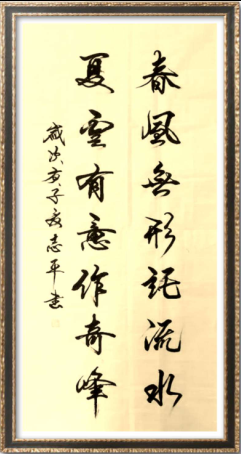 春風無形託流水
夏雲有意作奇峰
歲次庚子 志平書